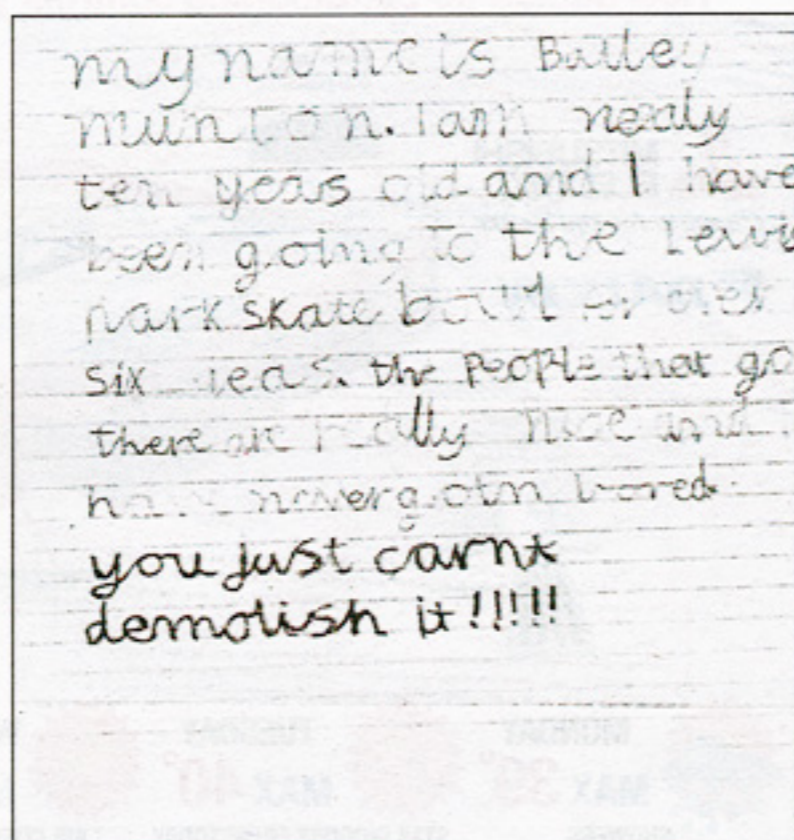 my name is Bailey
munton. I am nealy
ten years old and I have
been going to the Lewis
park skate bowl for over
six years. the people that go
there are really nice and I
have never gotn bored.
you just carnt
demolish it!!!!!
MONDAY
TUESDAY
MAX 39°
MAX 40°